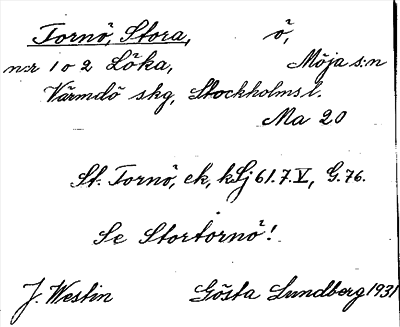 Tornö, Stora, ö,
n:r 1 o 2 Löka, Möja s:n
Värmdö skg, Stockholms l.
Ma 20
St. Tornö, ek, kSj 61.7.V, G.76.
Se Stortornö!
J. Westin Gösta Lundberg 1931